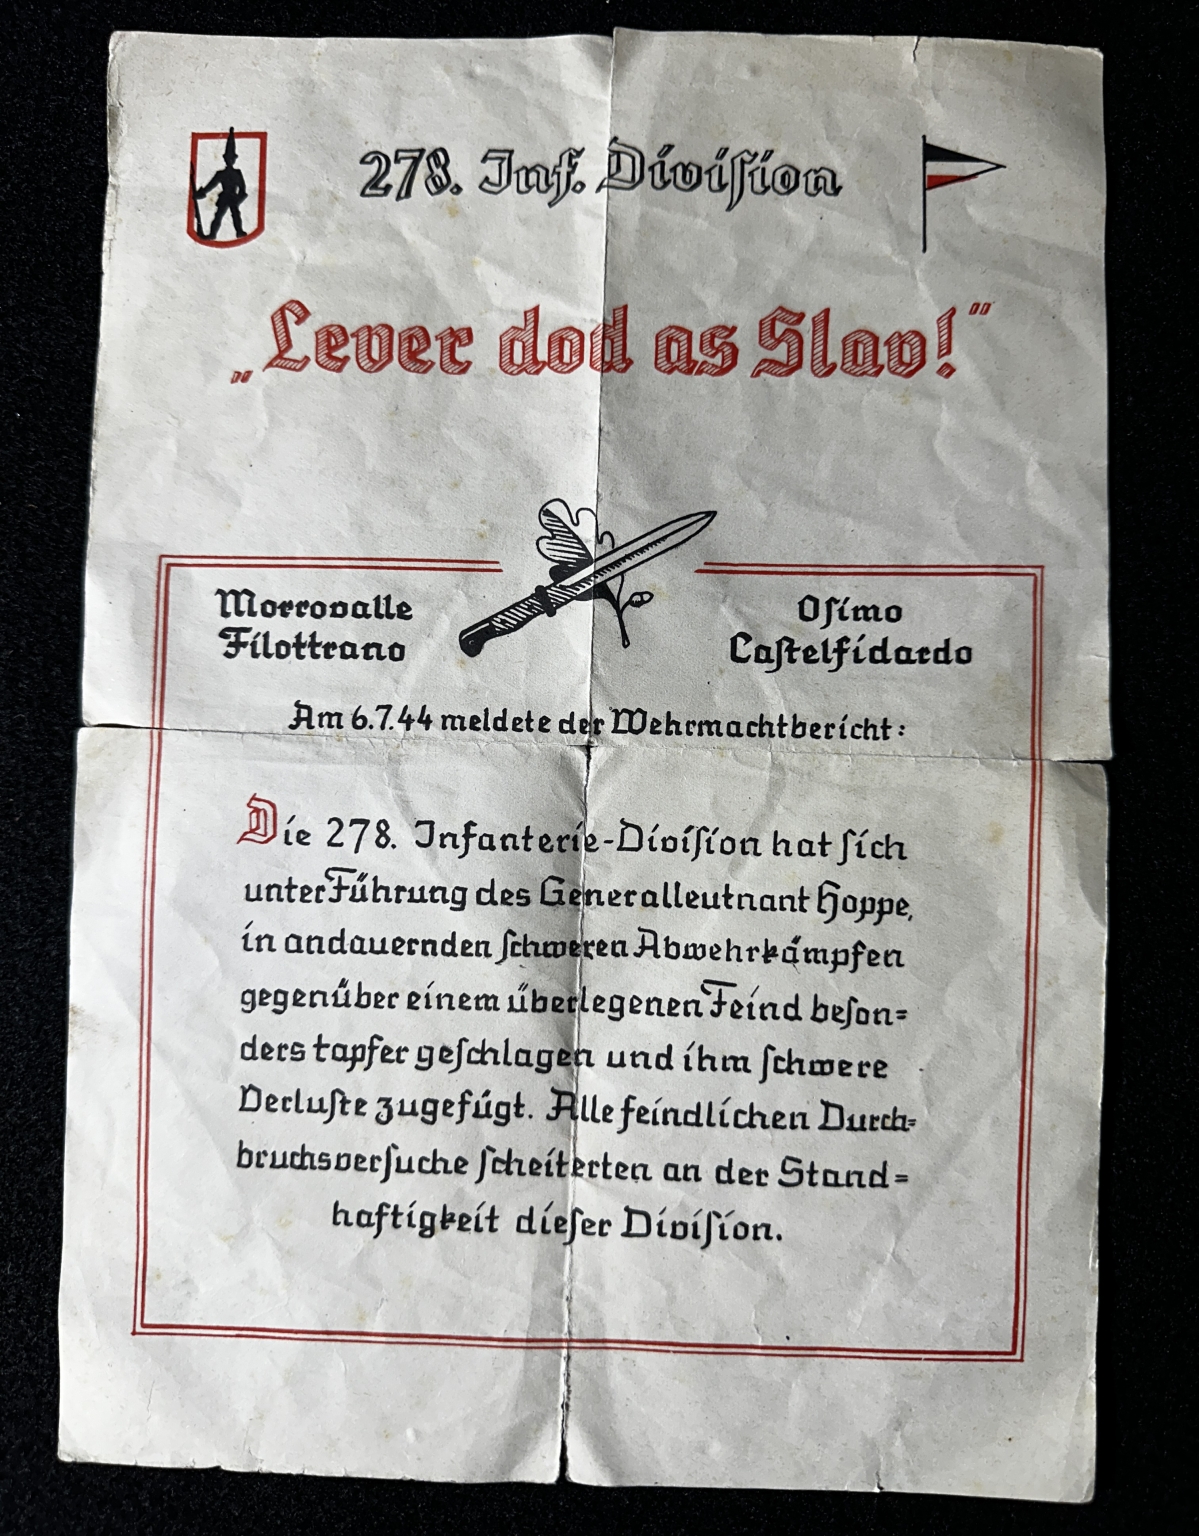 278. Inf. Division
„Lever dod as Slav!"
Morrovalle
Filottrano
Osimo
Castelfidardo
Am 6.7.44 meldete der Wehrmachtbericht:
Die 278. Infanterie-Division hat sich
unter Führung des Generalleutnant Hoppe,
in andauernden schweren Abwehrkämpfen
gegenüber einem überlegenen Feind beson=
ders tapfer geschlagen und ihm schwere
Verluste zugefügt. Alle feindlichen Durch=
bruchsversuche scheiterten an der Stand=
haftigkeit dieser Division.